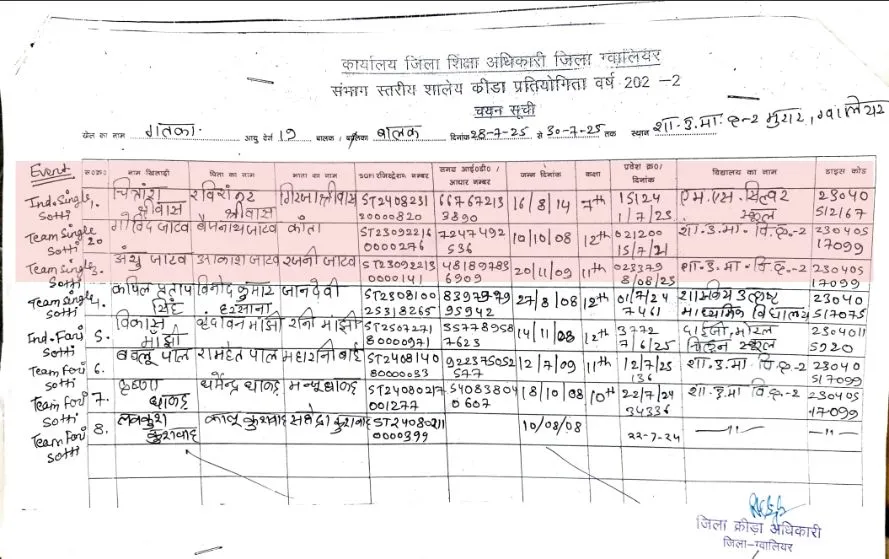 कार्यालय जिला शिक्षा अधिकारी जिला ग्वालियर
संभाग स्तरीय शालेय क्रीडा प्रतियोगिता वर्ष 202 -2
चयन सूची
खेल का नाम गतका आयु वर्ग 19 बालक / बालिका बालक दिनांक 28-7-25 से 30-7-25 तक स्थान शा.उ.मा.क्र-2 मुरार, ग्वालियर
Event स०क्र० नाम खिलाड़ी पिता का नाम माता का नाम SGFI रजिस्ट्रेशन नम्बर समग्र आई०डी० / आधार नम्बर जन्म दिनांक कक्षा प्रवेश क्र०/ दिनांक विद्यालय का नाम डाइस कोड
Ind. Single Sotti 1. चित्रांश श्रीवास रविशंकर श्रीवास गिरजा श्रीवास ST2408231 20000820 66767213 3890 16/8/14 7th 15124 1/7/25 एम.एस. सिल्वर स्कूल 23040 51267
Team Single Sotti 2. गोविंद जाटव बैजनाथ जाटव कांता ST23092216 0000276 7247492 536 10/10/08 12th 021200 15/7/21 शा.उ.मा.वि.क्र.-2 230405 17099
Team Single Sotti 3. अंशु जाटव आकाश जाटव रजनी जाटव ST23092213 0000141 48189783 6909 20/11/09 11th 023379 8/08/23 शा.उ.मा.वि.क्र.-2 230405 17099
Team Single Sotti 4. कपिल प्रताप सिंह विनोद कुमार जानदेवी ST2308100 25318265 8397979 95942 27/8/08 12th 01/7/24 7461 शासकीय उत्कृष्ट माध्यमिक विद्यालय 23040 517075
Ind. Fari Sotti 5. विकास माझी वृंदावन माझी रानी माझी ST2507271 80000971 55778958 7623 14/11/08 12th 3772 7/6/25 स्कूल 2304011 5920
Team Fari Sotti 6. बबलू पाल रामहेत पाल महारानी बाई ST2408140 80000033 922375052 577 12/7/09 11th 12/7/25 136 शा.उ.मा.वि.क्र.-2 23040 517099
Team Fari Sotti 7. कृष्णा धाकड़ धर्मेन्द्र धाकड़ धाकड़ ST24080217 001277 54083804 0607 18/10/08 10th 22/7/24 34336 शा.उ.मा वि.क्र-2 230405 17099
Team Fari Sotti 8. लवकुश कुशवाह कालू कुशवाह कुशवाह ST24080211 0000399 10/08/08 22-7-24 —11— —11—
जिला क्रीड़ा अधिकारी
जिला-ग्वालियर